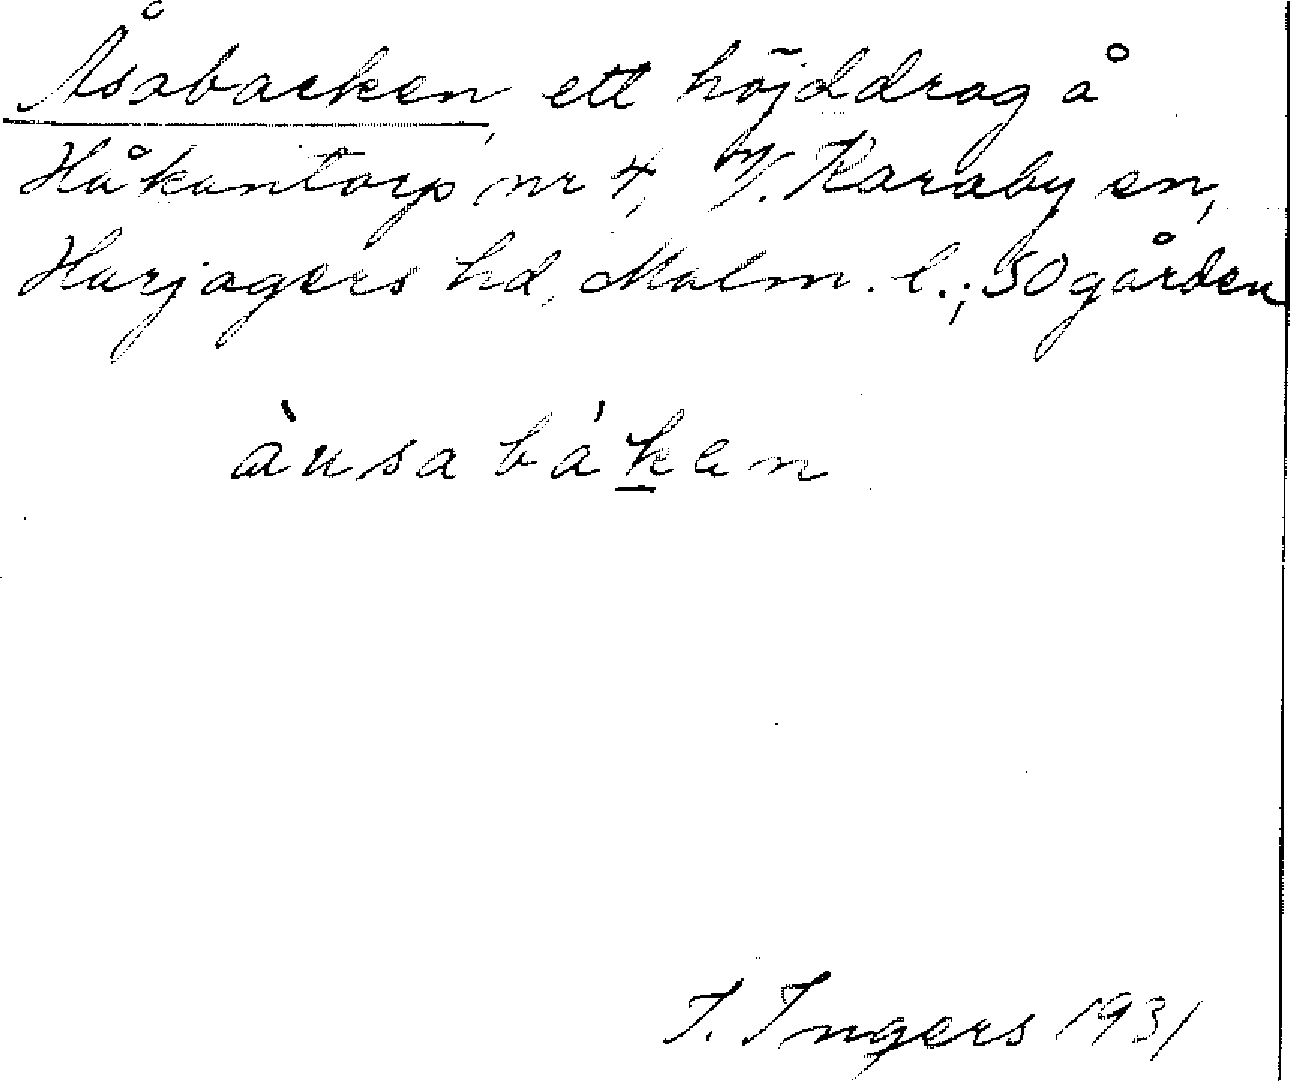 Åsabacken, ett höjddrag å
Håkantorp nr 4, V. Karaby sn,
Harjagers hd, Malm. l.; SOgården
àusa bákan
I. Ingers 1931